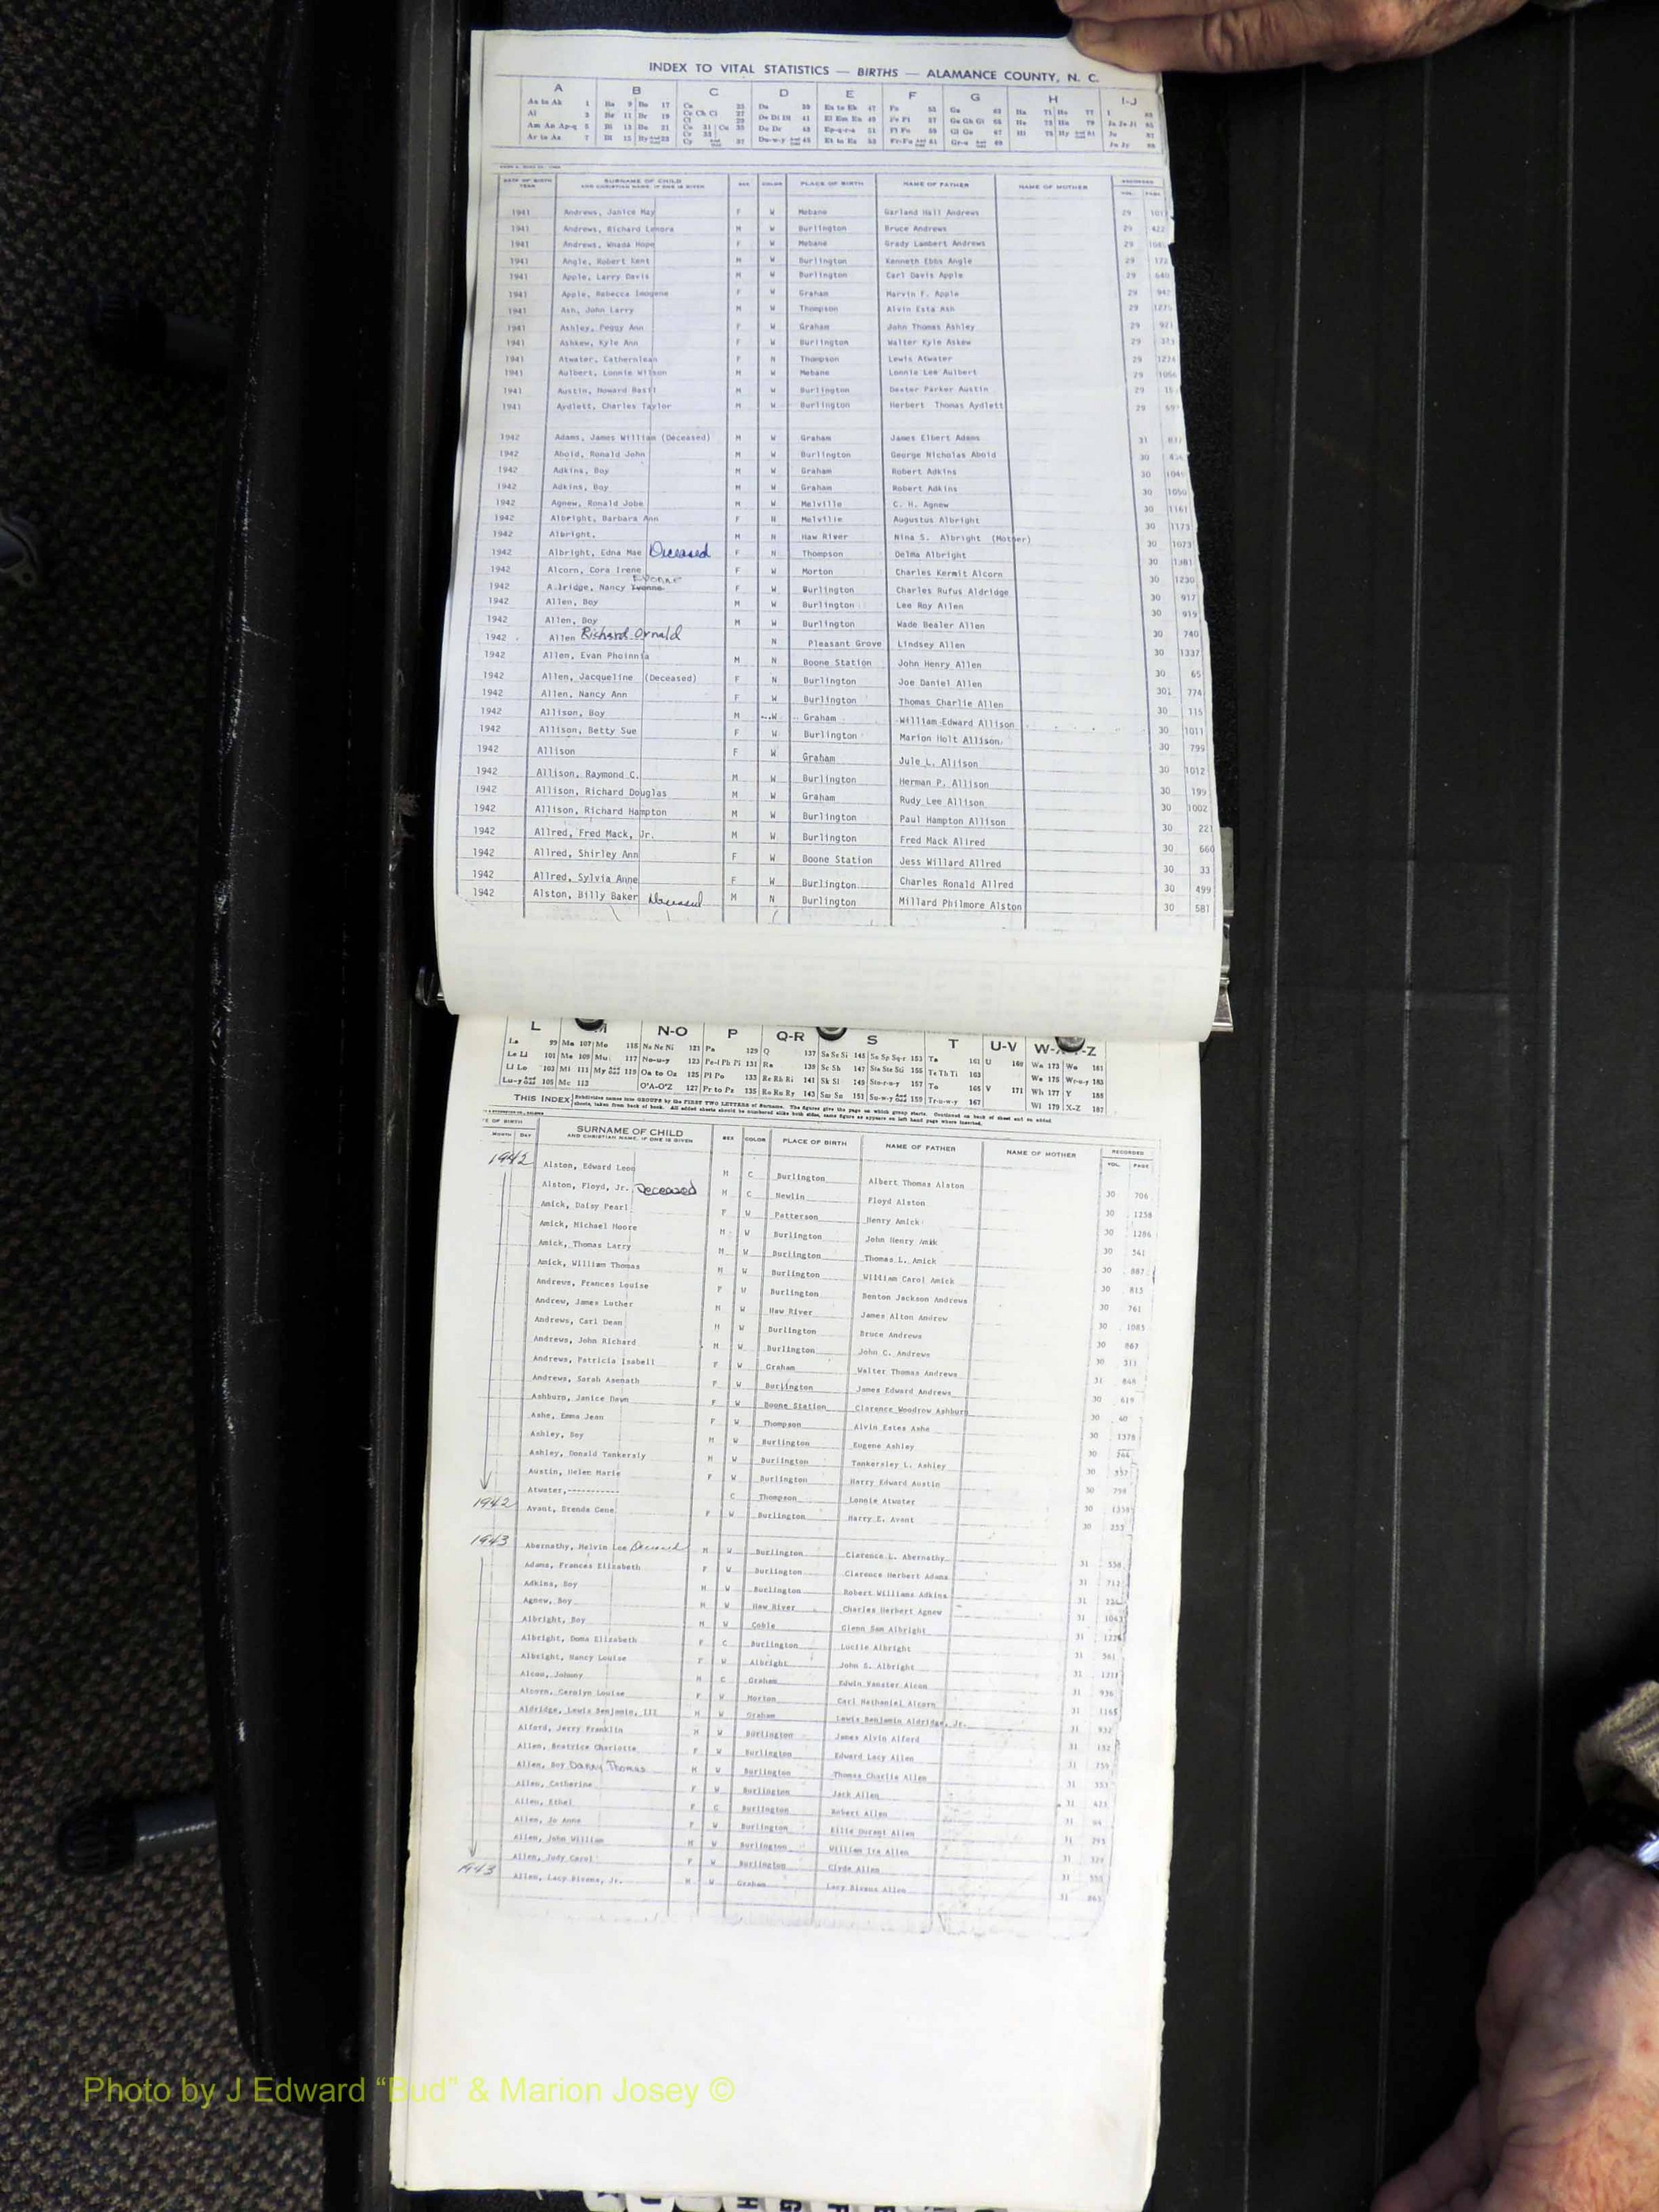 INDEX TO VITAL STATISTICS — BIRTHS — ALAMANCE COUNTY, N. C.
A B C D E F G H I-J
DATE OF BIRTH YEAR SURNAME OF CHILD AND CHRISTIAN NAME, IF ONE IS GIVEN SEX COLOR PLACE OF BIRTH NAME OF FATHER NAME OF MOTHER RECORDED VOL. PAGE
1941 Andrews, Janice May F W Mebane Garland Hall Andrews 29
1941 Andrews, Richard Lenora M W Burlington Bruce Andrews 29 422
1941 Andrews, Wnada Hope F W Mebane Grady Lambert Andrews 29
1941 Angle, Robert Kent M W Burlington Kenneth Ebbs Angle 29 172
1941 Apple, Larry Davis M W Burlington Carl Davis Apple 29 640
1941 Apple, Rebecca Imogene F W Graham Marvin F. Apple 29 942
1941 Ash, John Larry M W Thompson Alvin Esta Ash 29 1275
1941 Ashley, Peggy Ann F W Graham John Thomas Ashley 29 921
1941 Ashkew, Kyle Ann F W Burlington Walter Kyle Askew 29 373
1941 Atwater, Cathernlean F N Thompson Lewis Atwater 29 1224
1941 Aulbert, Lonnie Wilson M W Mebane Lonnie Lee Aulbert 29 1056
1941 Austin, Howard Basil M W Burlington Dexter Parker Austin 29
1941 Aydlett, Charles Taylor M W Burlington Herbert Thomas Aydlett 29
1942 Adams, James William (Deceased) M W Graham James Elbert Adams 31
1942 Aboid, Ronald John M W Burlington George Nicholas Aboid 30
1942 Adkins, Boy M W Graham Robert Adkins 30 1049
1942 Adkins, Boy M W Graham Robert Adkins 30 1050
1942 Agnew, Ronald Jobe M W Melville C. H. Agnew 30 1161
1942 Albright, Barbara Ann F N Melville Augustus Albright 30 1173
1942 Albright, M N Haw River Nina S. Albright (Mother) 30 1073
1942 Albright, Edna Mae Deceased F N Thompson Delma Albright 30 1381
1942 Alcorn, Cora Irene F W Morton Charles Kermit Alcorn 30 1230
Evonne
1942 A.lridge, Nancy Yvonne F W Burlington Charles Rufus Aldridge 30 917
1942 Allen, Boy M W Burlington Lee Roy Allen 30 919
1942 Allen, Boy M W Burlington Wade Bealer Allen 30 740
1942 Allen Richard Ornald N Pleasant Grove Lindsey Allen 30 1337
1942 Allen, Evan Phoinnia M N Boone Station John Henry Allen 30 65
1942 Allen, Jacqueline (Deceased) F N Burlington Joe Daniel Allen 30 774
1942 Allen, Nancy Ann F W Burlington Thomas Charlie Allen 30 115
1942 Allison, Boy M W Graham William Edward Allison 30 1011
1942 Allison, Betty Sue F W Burlington Marion Holt Allison 30 799
1942 Allison F W Graham Jule L. Allison 30 1012
1942 Allison, Raymond C. M W Burlington Herman P. Allison 30 199
1942 Allison, Richard Douglas M W Graham Rudy Lee Allison 30 1002
1942 Allison, Richard Hampton M W Burlington Paul Hampton Allison 30 221
1942 Allred, Fred Mack, Jr. M W Burlington Fred Mack Allred 30 660
1942 Allred, Shirley Ann F W Boone Station Jess Willard Allred 30 33
1942 Allred, Sylvia Anne F W Burlington Charles Ronald Allred 30 499
1942 Alston, Billy Baker Deceased M N Burlington Millard Philmore Alston 30 581
L M N-O P Q-R S T U-V W-X Y-Z
THIS INDEX Subdivides names into GROUPS by the FIRST TWO LETTERS of Surname. The figures give the page on which group starts. Continued on back of sheet and on added
sheets, taken from back of book. All added sheets should be numbered alike both sides, same figure as appears on left hand page where inserted.
MONTH DAY SURNAME OF CHILD AND CHRISTIAN NAME, IF ONE IS GIVEN SEX COLOR PLACE OF BIRTH NAME OF FATHER NAME OF MOTHER RECORDED VOL. PAGE
1942 Alston, Edward Leon M C Burlington Albert Thomas Alston 30 706
Alston, Floyd, Jr. Deceased M C Newlin Floyd Alston 30 1258
Amick, Daisy Pearl F W Patterson Henry Amick 30 1286
Amick, Michael Moore M W Burlington John Henry Amik 30 541
Amick, Thomas Larry M W Burlington Thomas L. Amick 30 887
Amick, William Thomas M W Burlington William Carol Amick 30 815
Andrews, Frances Louise F W Burlington Benton Jackson Andrews 30 761
Andrew, James Luther M W Haw River James Alton Andrew 30 1085
Andrews, Carl Dean M W Burlington Bruce Andrews 30 867
Andrews, John Richard M W Burlington John C. Andrews 30 311
Andrews, Patricia Isabell F W Graham Walter Thomas Andrews 31 848
Andrews, Sarah Asenath F W Burlington James Edward Andrews 30 619
Ashburn, Janice Dawn F W Boone Station Clarence Woodrow Ashburn 30 40
Ashe, Emma Jean F W Thompson Alvin Estes Ashe 30 1378
Ashley, Boy M W Burlington Eugene Ashley 30 244
Ashley, Donald Tankersly M W Burlington Tankersley L. Ashley 30 357
Austin, Helen Marie F W Burlington Harry Edward Austin 30 798
Atwater,----------- C Thompson Lonnie Atwater 30
1942 Avant, Brenda Gene F W Burlington Harry E. Avant 30 253
1943 Abernathy, Melvin Lee Deceased M W Burlington Clarence L. Abernathy 31 558
Adams, Frances Elizabeth F W Burlington Clarence Herbert Adams 31 712
Adkins, Boy M W Burlington Robert Williams Adkins 31
Agnew, Boy M W Haw River Charles Herbert Agnew 31 1043
Albright, Boy M W Coble Glenn Sam Albright 31
Albright, Doma Elizabeth F C Burlington Lucile Albright 31 561
Albright, Nancy Louise F W Albright John G. Albright 31
Alcon, Johnny M C Graham Edwin Vanster Alcon 31 936
Alcorn, Carolyn Louise F W Morton Carl Nathaniel Alcorn 31 1165
Aldridge, Lewis Benjamin, III M W Graham Lewis Benjamin Aldridge, Jr. 31 932
Alford, Jerry Franklin M W Burlington James Alvin Alford 31 152
Allen, Beatrice Charlotte F W Burlington Edward Lacy Allen 31 759
Allen, Boy Danny Thomas M W Burlington Thomas Charlie Allen 31
Allen, Catherine F W Burlington Jack Allen 31 423
Allen, Ethel F C Burlington Robert Allen 31 94
Allen, Jo Anne F W Burlington Durant Allen 31
Allen, John William M W Burlington William Ira Allen 31
Allen, Judy Carol F W Burlington Clyde Allen 31
1943 Allen, Lacy Bivens, Jr. M W Graham Lacy Bivens Allen 31
Photo by J Edward “Bud” & Marion Josey ©